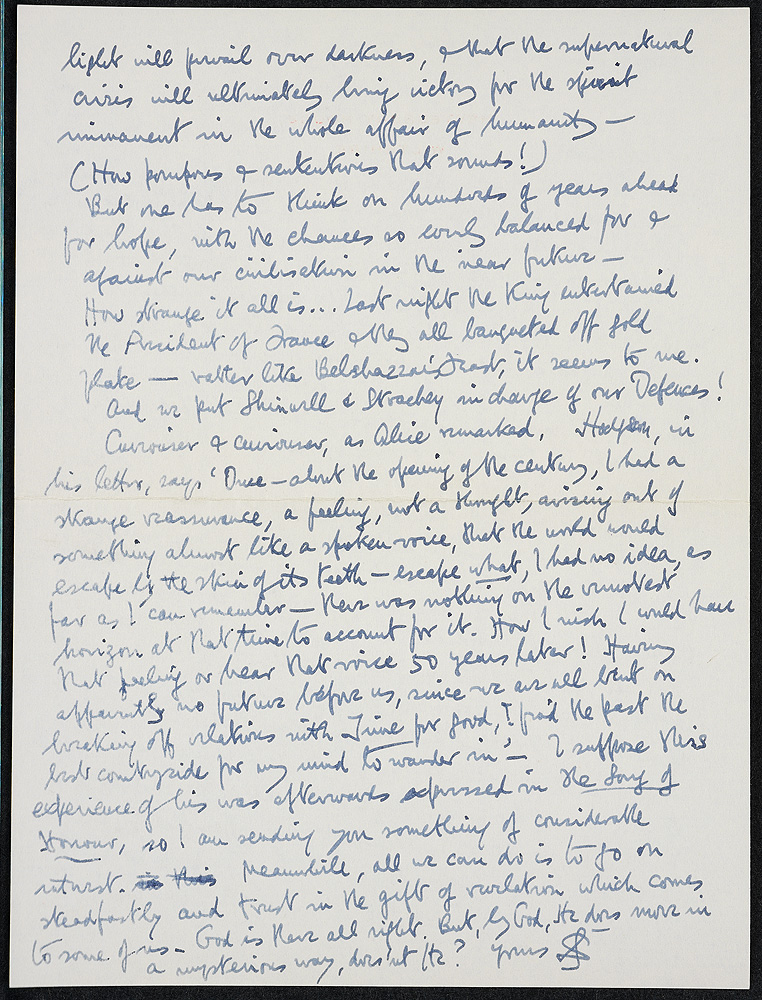 light will prevail over darkness, & that the supernatural
crisis will ultimately bring victory for the spirit
immanent in the whole affair of humanity —
(How pompous & sententious that sounds!)
But one has to think on hundreds of years ahead
for hope, with the chances so evenly balanced for &
against our civilisation in the near future —
How strange it all is... Last night the King entertained
the President of France & they all banqueted off gold
plate — rather like Belshazzar's Feast, it seems to me.
And we put Shinwell & Strachey in charge of our Defences!
Curiouser & curiouser, as Alice remarked. Hodgson, in
his letter, says 'Once — about the opening of the century, I had a
strange reassurance, a feeling, not a thought, arising out of
something almost like a spoken voice, that the world would
escape by the skin of its teeth — escape what, I had no idea, as
far as I can remember — there was nothing on the remotest
horizon at that time to account for it. How I wish I could have
that feeling or hear that voice 50 years later! Having
apparently no future before us, since we are all bent on
breaking off relations with Time for good, I find the past the
best countryside for my mind to wander in' — I suppose this
experience of his was afterwards expressed in the Song of
Honour, so I am sending you something of considerable
interest. in this Meanwhile, all we can do is to go on
steadfastly and trust in the gift of revelation which comes
to some of us — God is there all right. But, by God, He does move in
a mysterious way, does'nt He? Yours SS